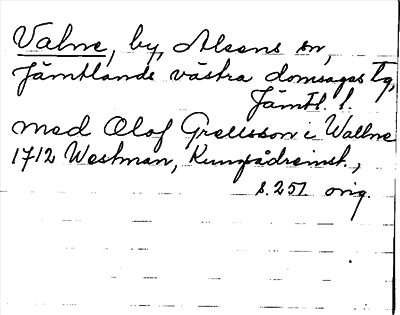 Valne, by, Alsens sn,
Jämtlands västra domsagas tg,
Jämtl. l.
med Olof Grelsson i Wallne
1712 Westman, Kunradreinst.,
s. 251 orig.